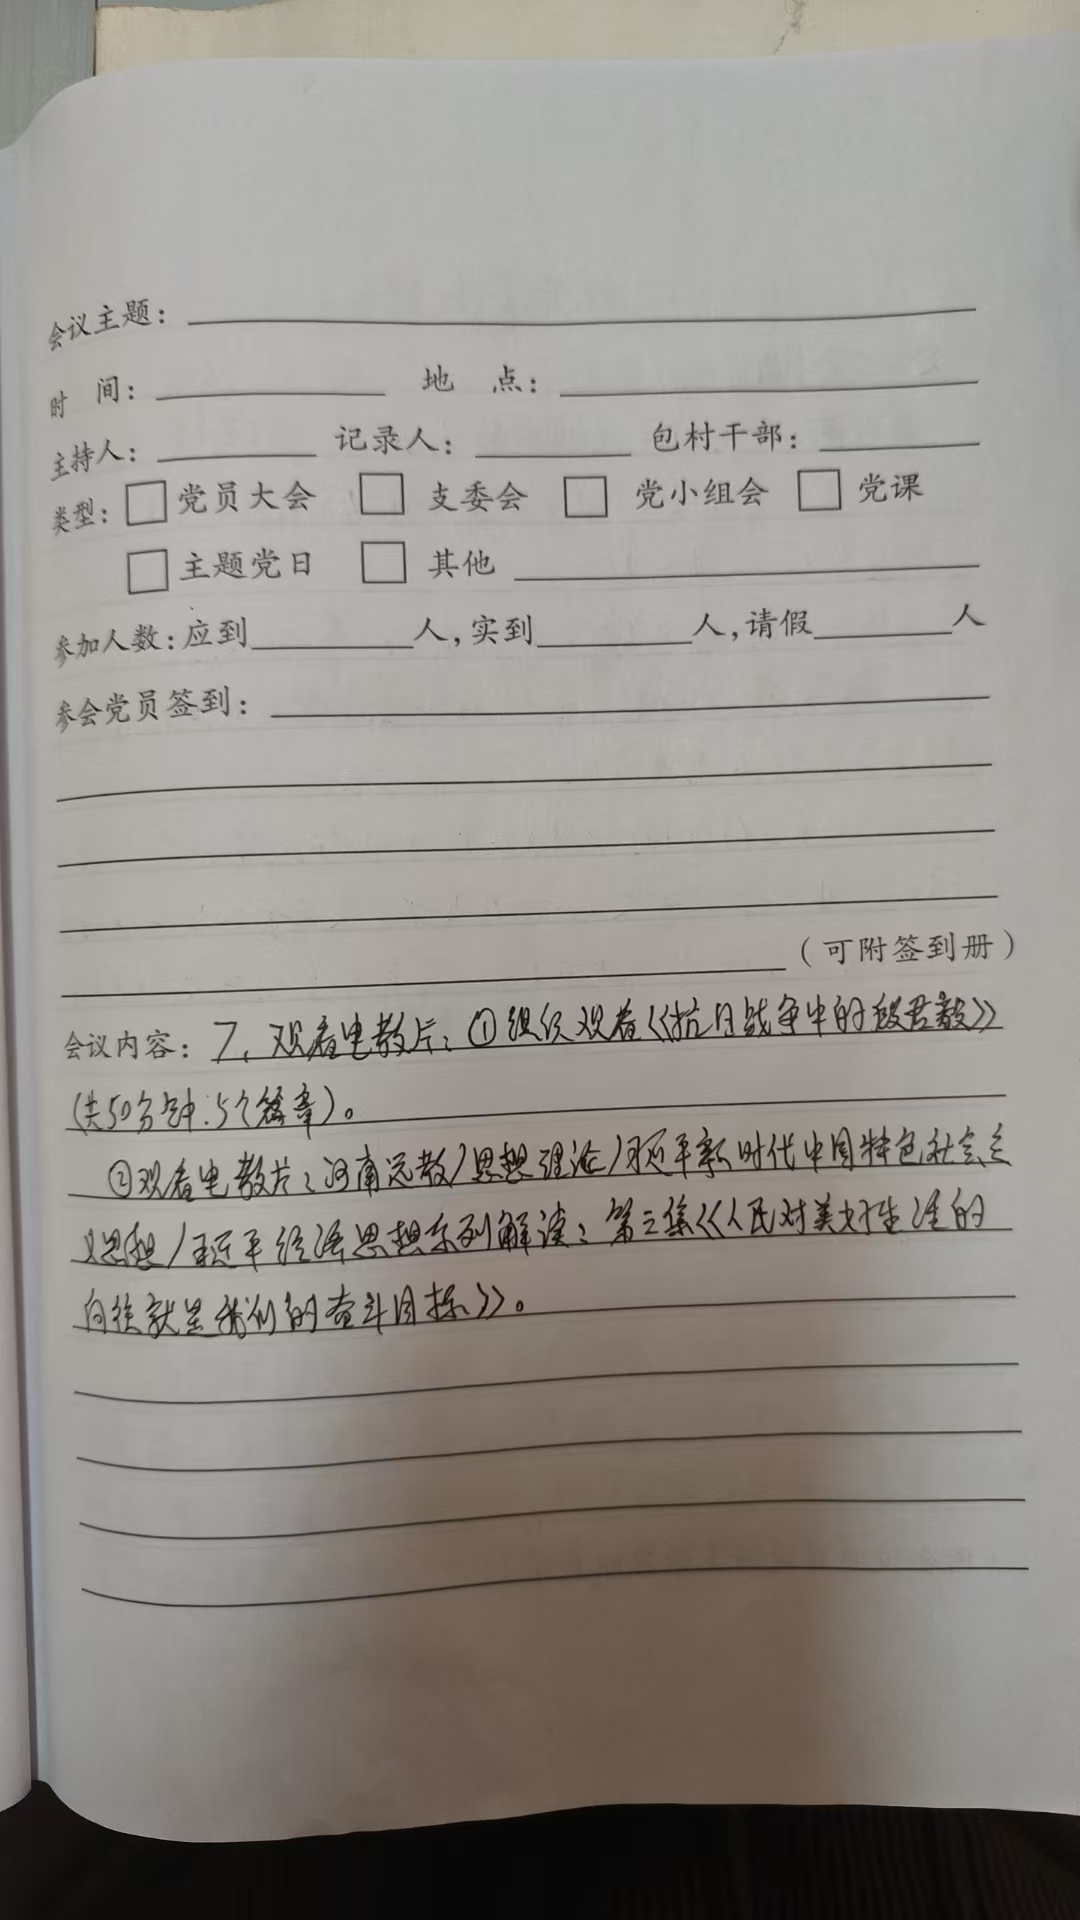 会议主题：
时 间： 地 点：
主持人： 记录人： 包村干部：
类型： 党员大会 支委会 党小组会 党课
主题党日 其他
参加人数：应到 人，实到 人，请假 人
参会党员签到：
（可附签到册）
会议内容： 7、观看电教片：①组织观看《抗日战争中的段君毅》
(共50分钟.5个篇章)。
②观看电教片：河南远教/思想理论/习近平新时代中国特色社会主
义思想/习近平经济思想系列解读：第二集《人民对美好生活的
向往就是我们的奋斗目标》。